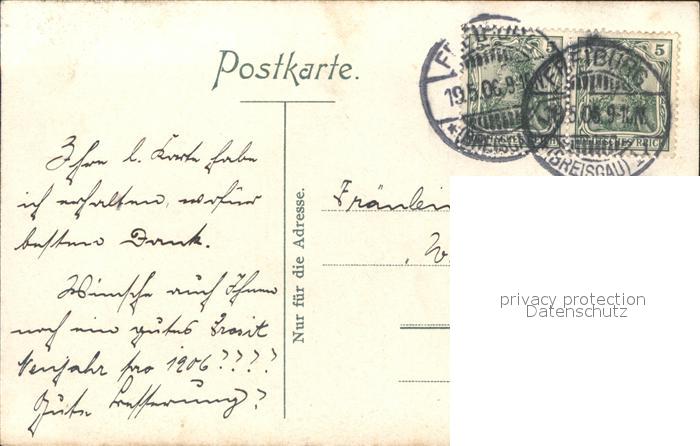 Postkarte.
5 5
FREIBURG
19.5.06.9-10N
(BREISGAU)
DEUTSCHES REICH
FREIBURG
19.5.06.9-10N
(BREISGAU)
Ihre l. Karte habe
ich erhalten, wofür
besten Dank.
Wünsche auch Ihnen
noch ein gutes Prosit
Neujahr pro 1906????
Gute Besserung?
Nur für die Adresse.
Fräulein
privacy protection
Datenschutz